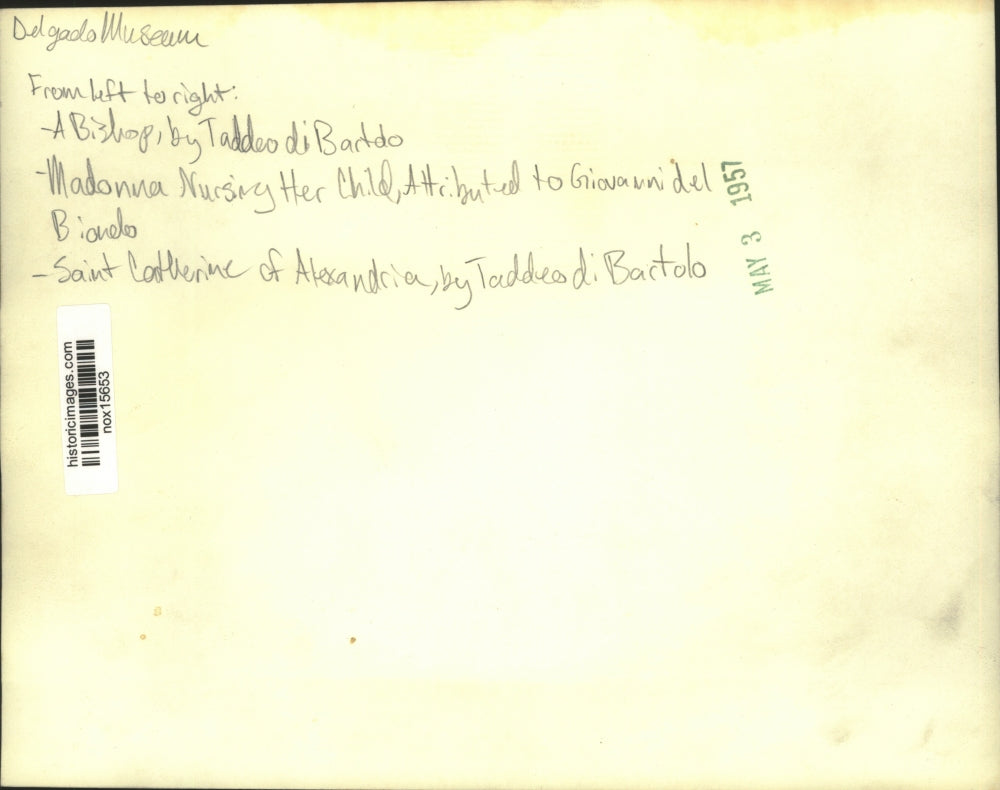 Delgado Museum
From left to right:
- A Bishop, by Taddeo di Bartolo
- Madonna Nursing Her Child, Attributed to Giovanni del
Biondo
- Saint Catherine of Alexandria, by Taddeo di Bartolo
MAY 3 1957
historicimages.com
nox15653